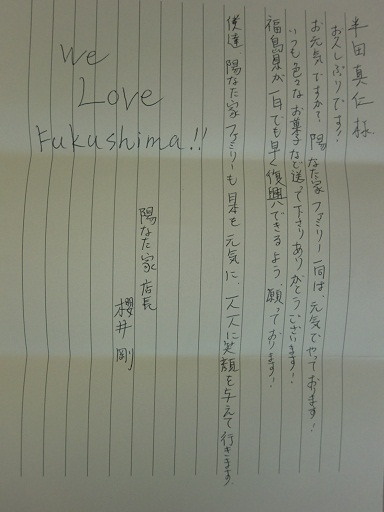 半田真仁様
お久しぶりです！
お元気ですか？、陽なた家ファミリー一同は、元気でやっております！
いつも色々なお菓子など送って下さりありがとうございます！
福島県が一日でも早く復興できるよう、願っております！
僕達 陽なた家ファミリーも日本を元気に、一人一人に笑顔を与えて行きます
We
Love
Fukushima!!
陽なた家 店長
櫻井 剛